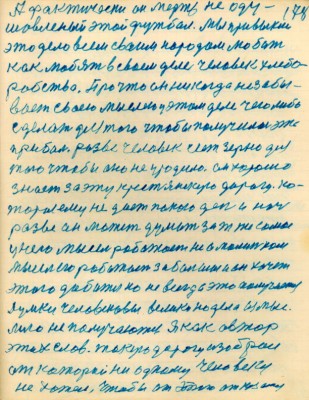 А фактически он мертв, не оду-
шовленый этой службай. Мы привыкли
это дело всем своим народом любат
как любят в своем деле человек хлебо-
робство. Про что он никогда не забы-
вает своею мыслею у этом деле чего либо
сделат для того чтобы получилас уже
прибал. разве человек сеет зерно для
того чтобы оно не уродило. он хорошо
знает за эту крестьянскую дорогу. ко-
тораяему не дает покою ден и ноч
разве он может думат за то самое
у него мысел работает не о маленком
мысл его работает за балшим а он хочет
этого добится но не всегда это получается
думки человековы велики но дела из мыс-
лию не получаются Я как автор
этих слов. такую дорогу изобрел
от которой ни одному человеку
не хотел, чтобы от этого